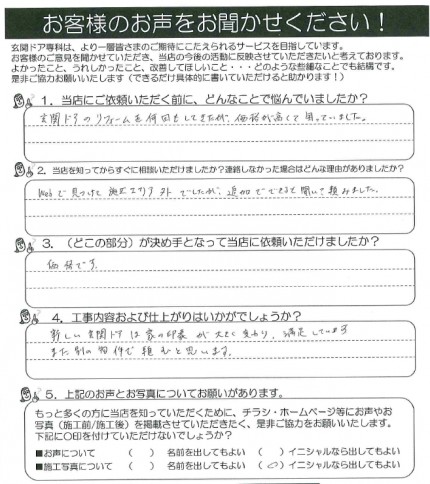 お客様のお声をお聞かせください！
玄関ドア専科は、より一層皆さまのご期待にこたえられるサービスを目指しています。
お客様のご意見を聞かせていただき、当店の今後の活動に反映させていただきたいと考えております。
よかったこと、うれしかったこと、改善してほしいこと・・・どのような些細なことでも結構です。
是非ご協力お願いいたします（できるだけ具体的に書いていただけると助かります！）
1．当店にご依頼いただく前に、どんなことで悩んでいましたか？
玄関ドアのリフォームを何回もしてきたが、価格が高くて困っていました。
2．当店を知ってからすぐに相談いただけましたか？連絡しなかった場合はどんな理由がありましたか？
Webで見つけて 施工エリア外 でしたが、追加でできると聞いて頼みました。
3．（どこの部分）が決め手となって当店に依頼いただけましたか？
価格です。
4．工事内容および仕上がりはいかがでしょうか？
新しい玄関ドアは家の印象が大きく変わり、満足しています
また別の物件で頼むと思います。
5．上記のお声とお写真についてお願いがあります。
もっと多くの方に当店を知っていただくために、チラシ・ホームページ等にお声やお
写真（施工前/施工後）を掲載させていただきたく、是非ご協力をお願いいたします。
下記に〇印を付けていただけないでしょうか？
■お声について （ ） 名前を出してもよい （ ）イニシャルなら出してもよい
■施工写真について （ ） 名前を出してもよい （〇）イニシャルなら出してもよい